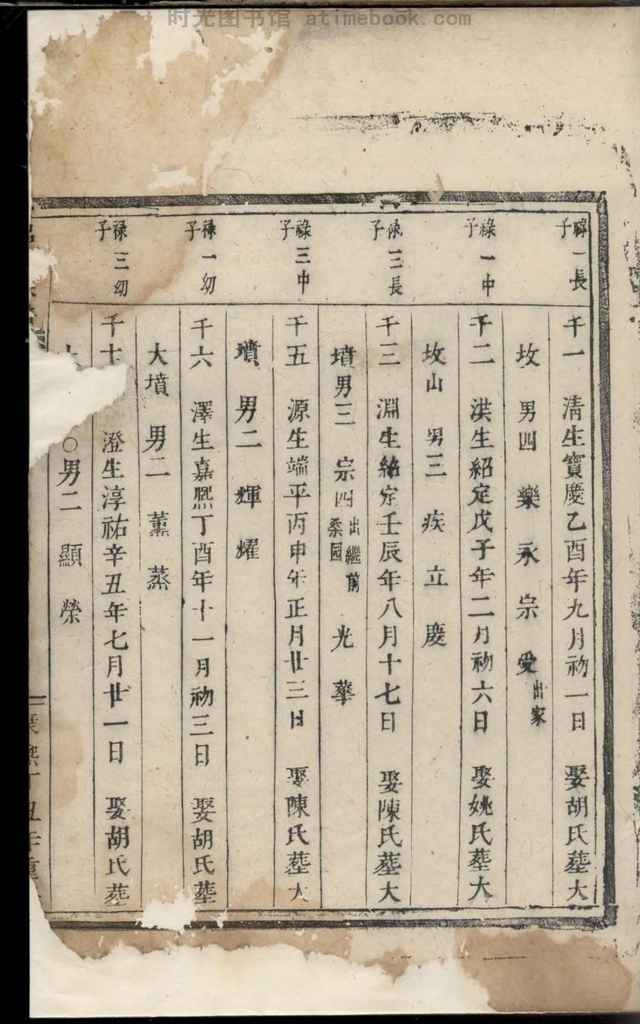 时光图书馆 atimebook.com
祿一長子
千一 清生寶慶乙酉年九月初一日 娶胡氏葬大
坟 男四 樂 永 宗 愛出家
祿一中子
千二 洪生紹定戊子年二月初六日 娶姚氏葬大
坟山 男三 疾 立 慶
祿三長子
千三 淵生紹定壬辰年八月十七日 娶陳氏葬大
墳男三 宗四出繼前桑園 光 華
祿三中子
千五 源生端平丙申年正月廿三日 娶陳氏葬大
墳 男二 輝 耀
祿一幼子
千六 澤生嘉熙丁酉年十一月初三日 娶胡氏葬
大墳 男二 薰 蒸
祿三幼子
千七 澄生淳祐辛丑年七月廿一日 娶胡氏葬
大 ○男二 顯 榮